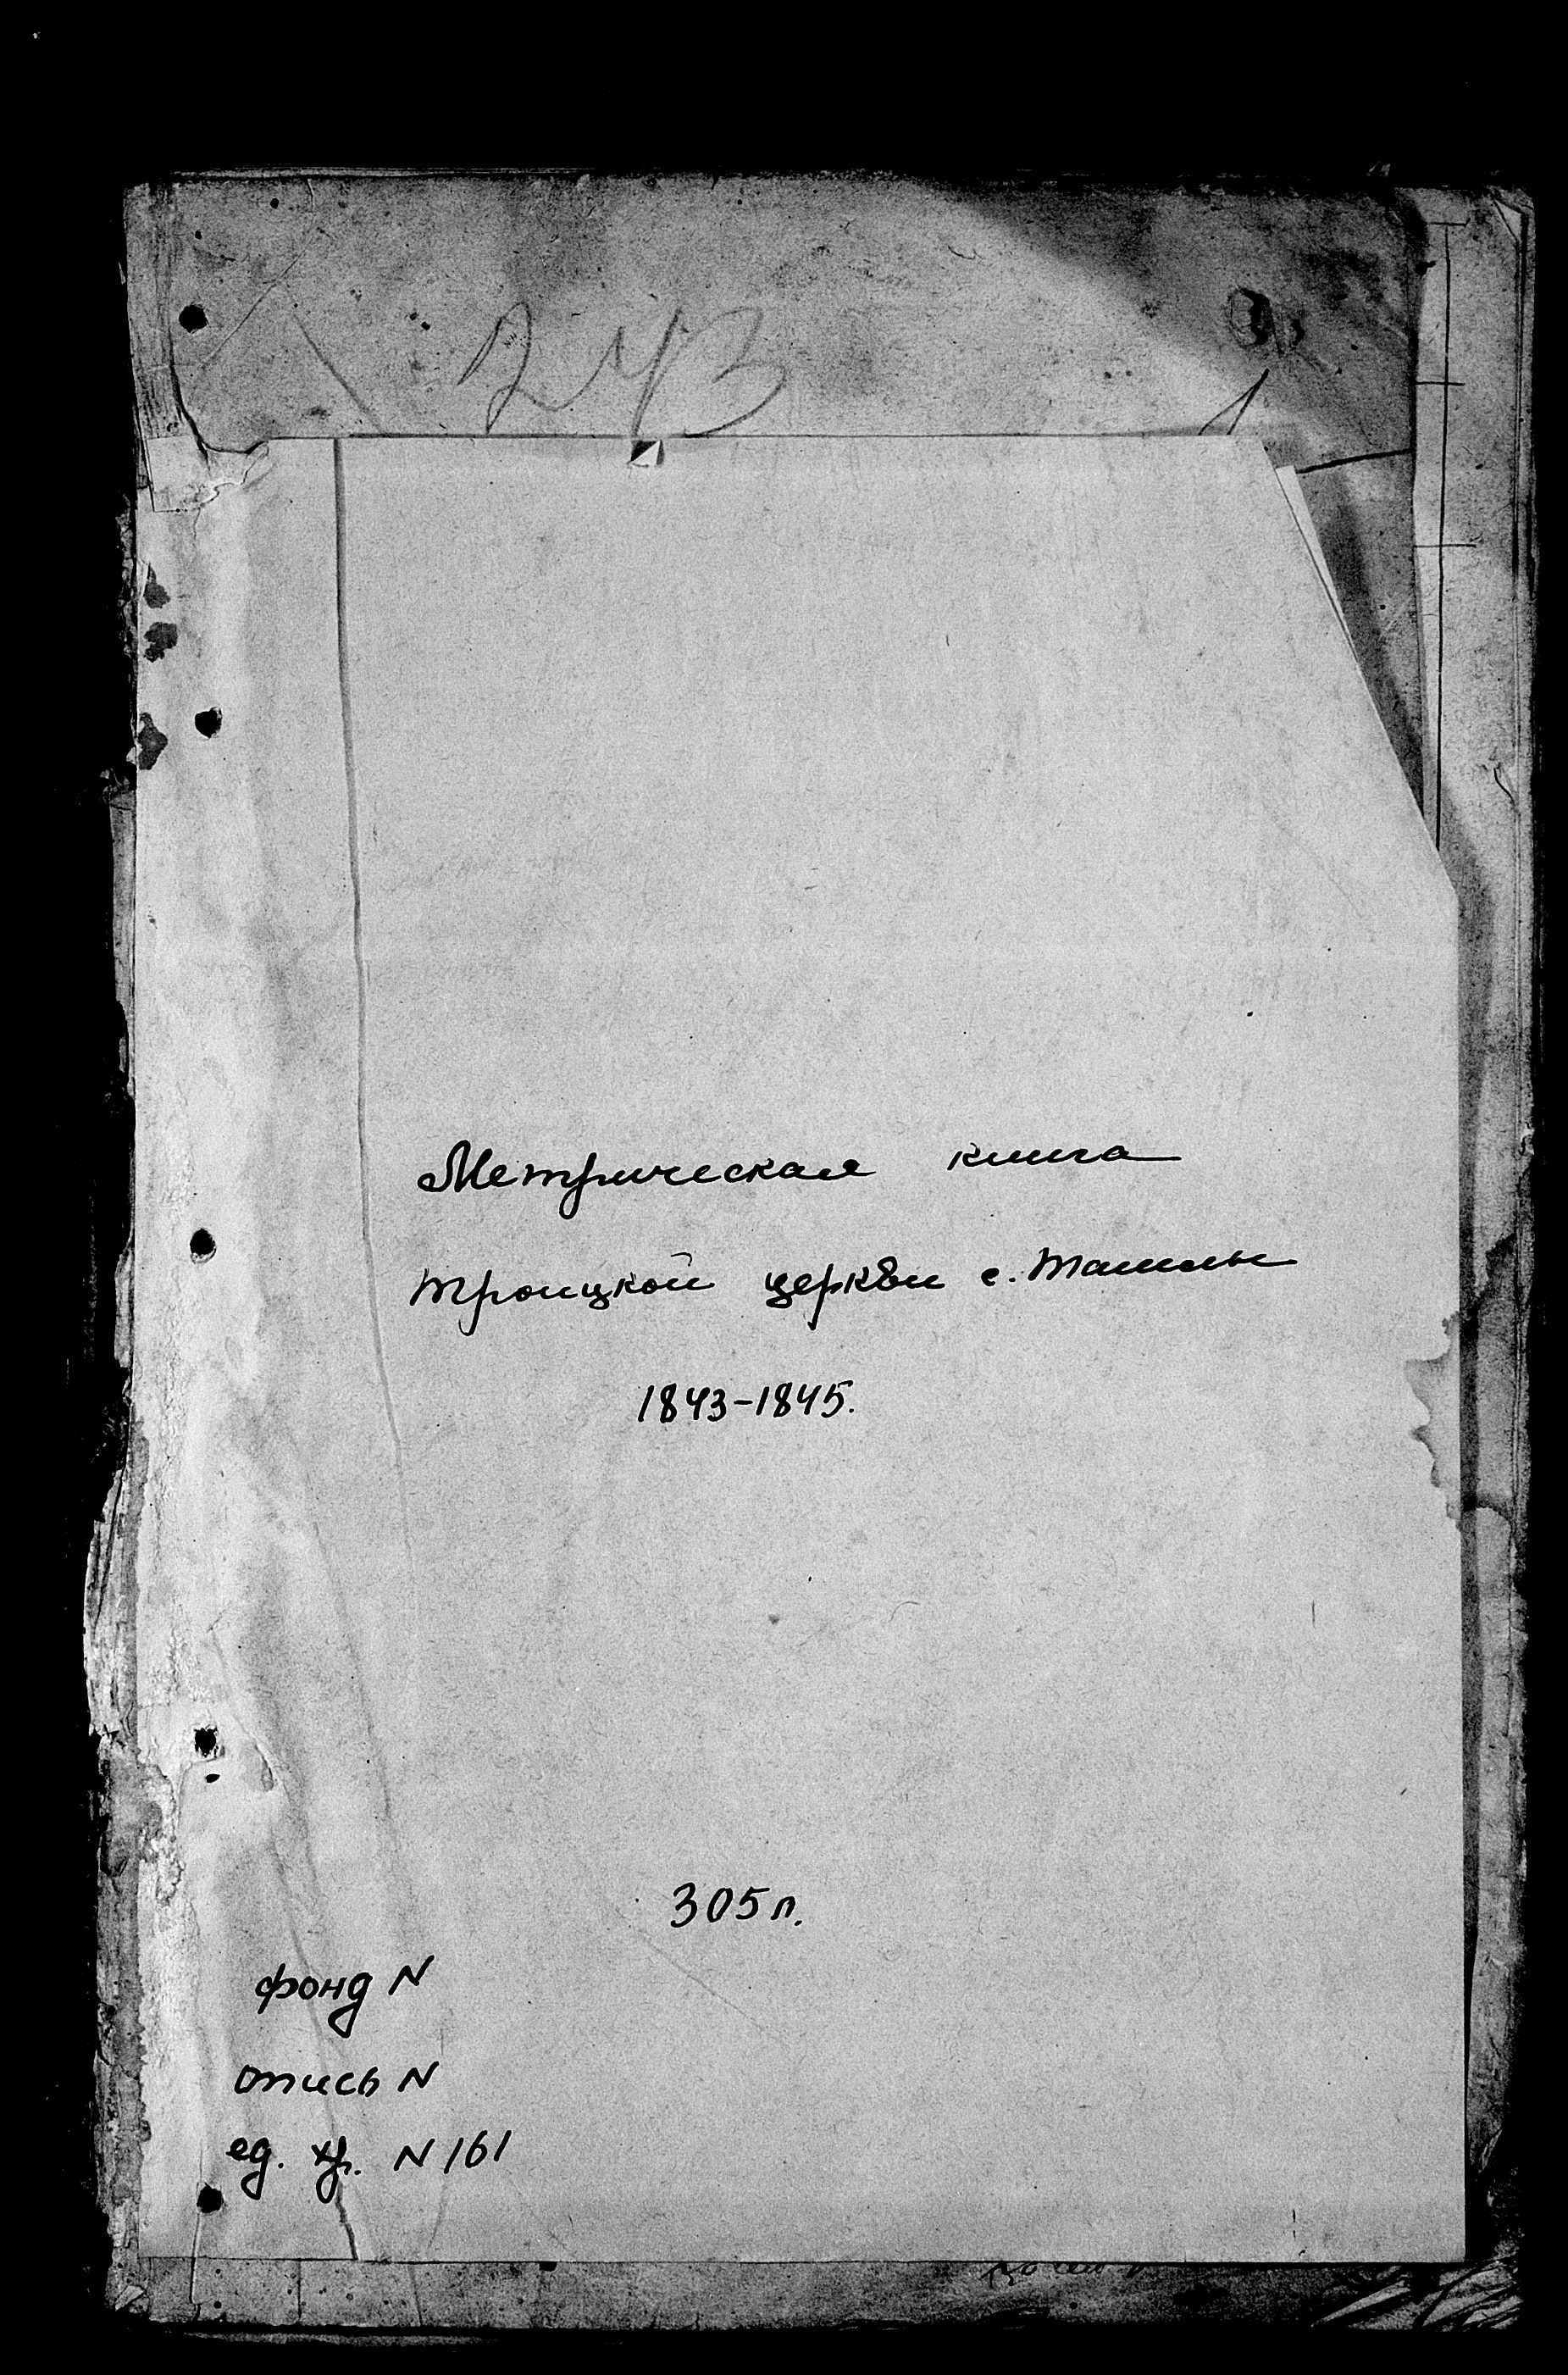 243
Метрическая книга
Троицкой церкви с. Ташлы
1843-1845.
305 л.
фонд N
опись N
ед. хр. N 161